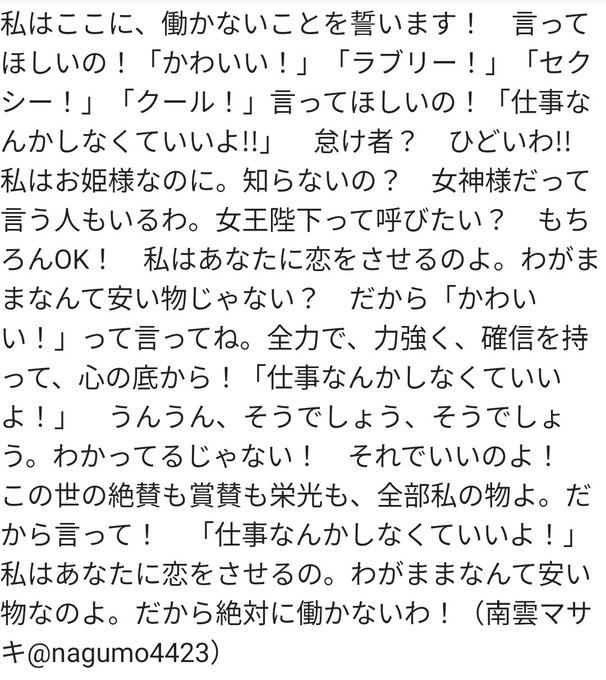 私はここに、働かないことを誓います！　言って
ほしいの！「かわいい！」「ラブリー！」「セク
シー！」「クール！」言ってほしいの！「仕事な
んかしなくていいよ!!」　怠け者？　ひどいわ!!
私はお姫様なのに。知らないの？　女神様だって
言う人もいるわ。女王陛下って呼びたい？　もち
ろんOK！　私はあなたに恋をさせるのよ。わがま
まなんて安い物じゃない？　だから「かわい
い！」って言ってね。全力で、力強く、確信を持
って、心の底から！「仕事なんかしなくていい
よ！」　うんうん、そうでしょう、そうでしょ
う。わかってるじゃない！　それでいいのよ！
この世の絶賛も賞賛も栄光も、全部私の物よ。だ
から言って！　「仕事なんかしなくていいよ！」
私はあなたに恋をさせるの。わがままなんて安い
物なのよ。だから絶対に働かないわ！（南雲マサ
キ@nagumo4423）